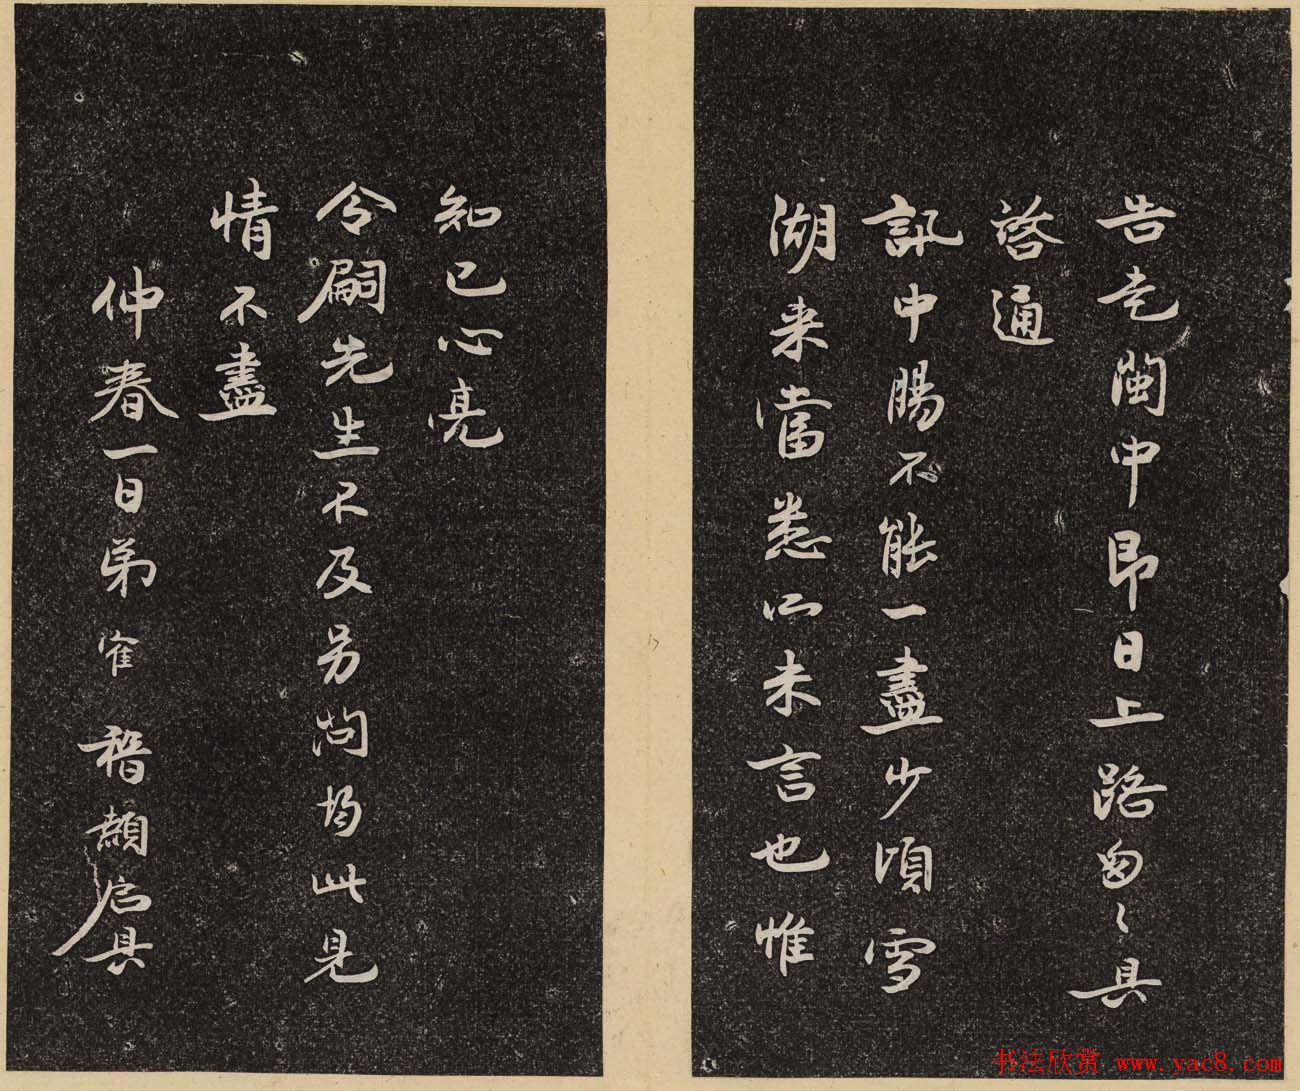 告老閩中昂日上路匆〻具
啓通
訊中腸不能一盡少頃雪
湖来當悉所未言也惟
知己心亮
令嗣先生不及另啟均此見
情不盡
仲春一日弟寉稽顙启具
书法欣赏 www.yac8.com